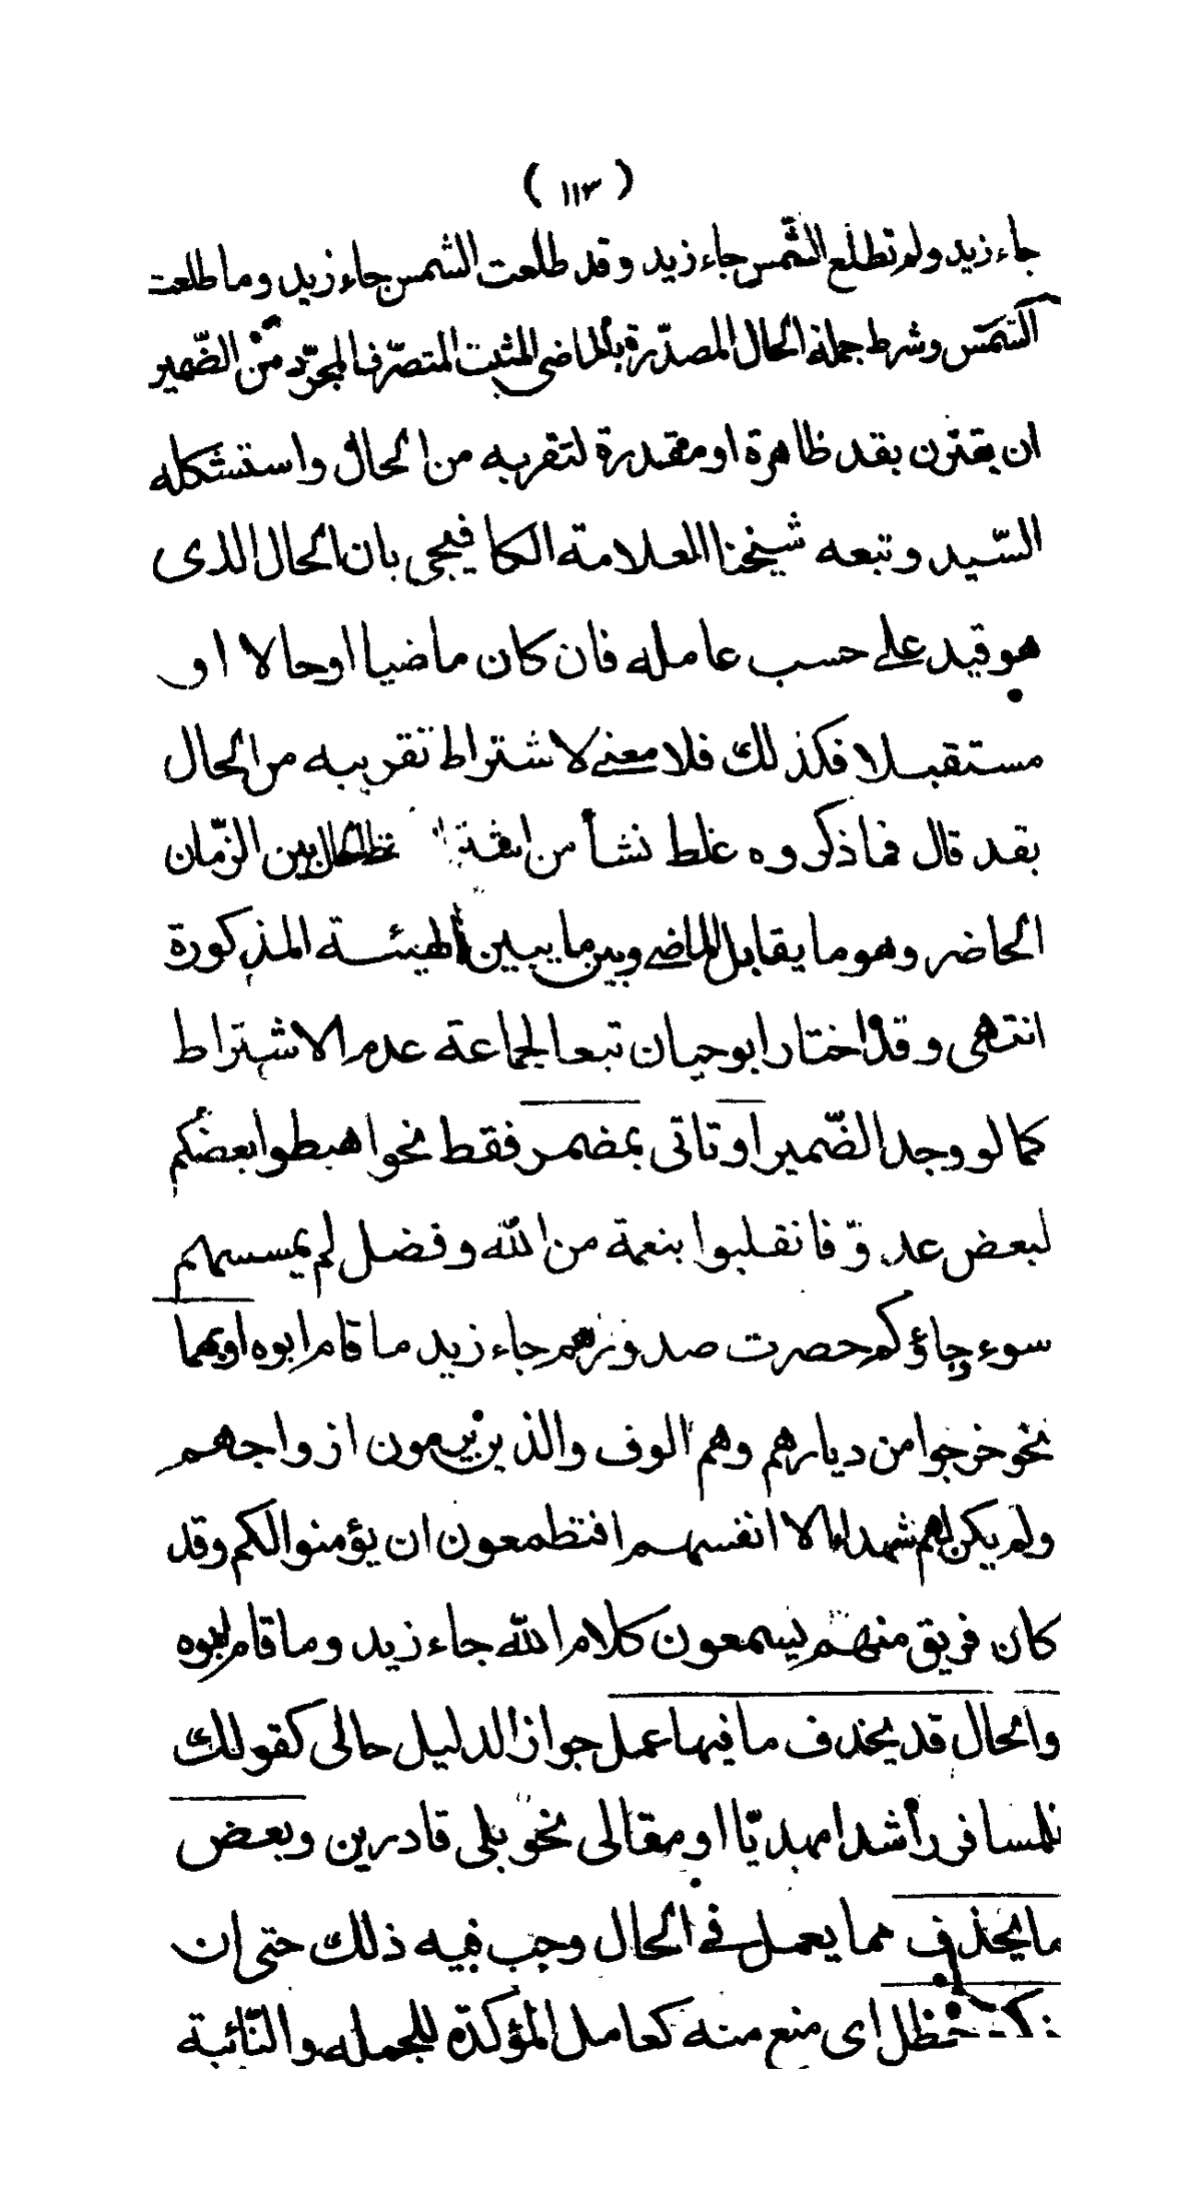 ( ١١٣ )
جاء زيد ولم تطلع الشّمس جاء زيد وقد طلعت الشمس جاء زيد وما طلعت
الشمس وشرط جملة الحال المصدّرة بالماضى المثبت المتصرّف المجرّد من الضّمير
ان يقترن بقد ظاهرة او مقدرة لتقربه من الحال واستشكله
السّيد وتبعه شيخنا العلامة الكافيجى بان الحال الذى
هو قيد على حسب عامله فان كان ماضيا اوحالا او
مستقبلا فكذلك فلا معنى لاشتراط تقريبه من الحال
بقد قال فما ذكروه غلط نشأ من الحال بين الزّمان
الحاضر وهو ما يقابل الماضى وبين ما يبين الهيئة المذكورة
انتهى وقد اختار ابوحيان تبعا لجماعة عدم الاشتراط
كما لو وجد الضّمير او تاتى بمضمر فقط نحو اهبطوا بعضكم
لبعض عدوّ فانقلبوا بنعمة من الله وفضل لم يمسسهم
سوء وجاؤكم حصرت صدورهم جاء زيد ما قام ابوه او بهما
نحو خرجوا من ديارهم وهم الوف والذين يرمون ازواجهم
ولم يكن لهم شهداء الا انفسهم افتطمعون ان يؤمنوا لكم وقد
كان فريق منهم يسمعون كلام الله جاء زيد وما قام ابوه
والحال قد يحذف ما فيها عمل جواز الدليل حالى كقولك
للمسافر راشدا مهديّا او مقالى نحو بلى قادرين وبعض
ما يحذف مما يعمل فى الحال وجب فيه ذلك حتى ان
ذكره حظل اى منع منه كعامل المؤكدة للجمله والنّائبة